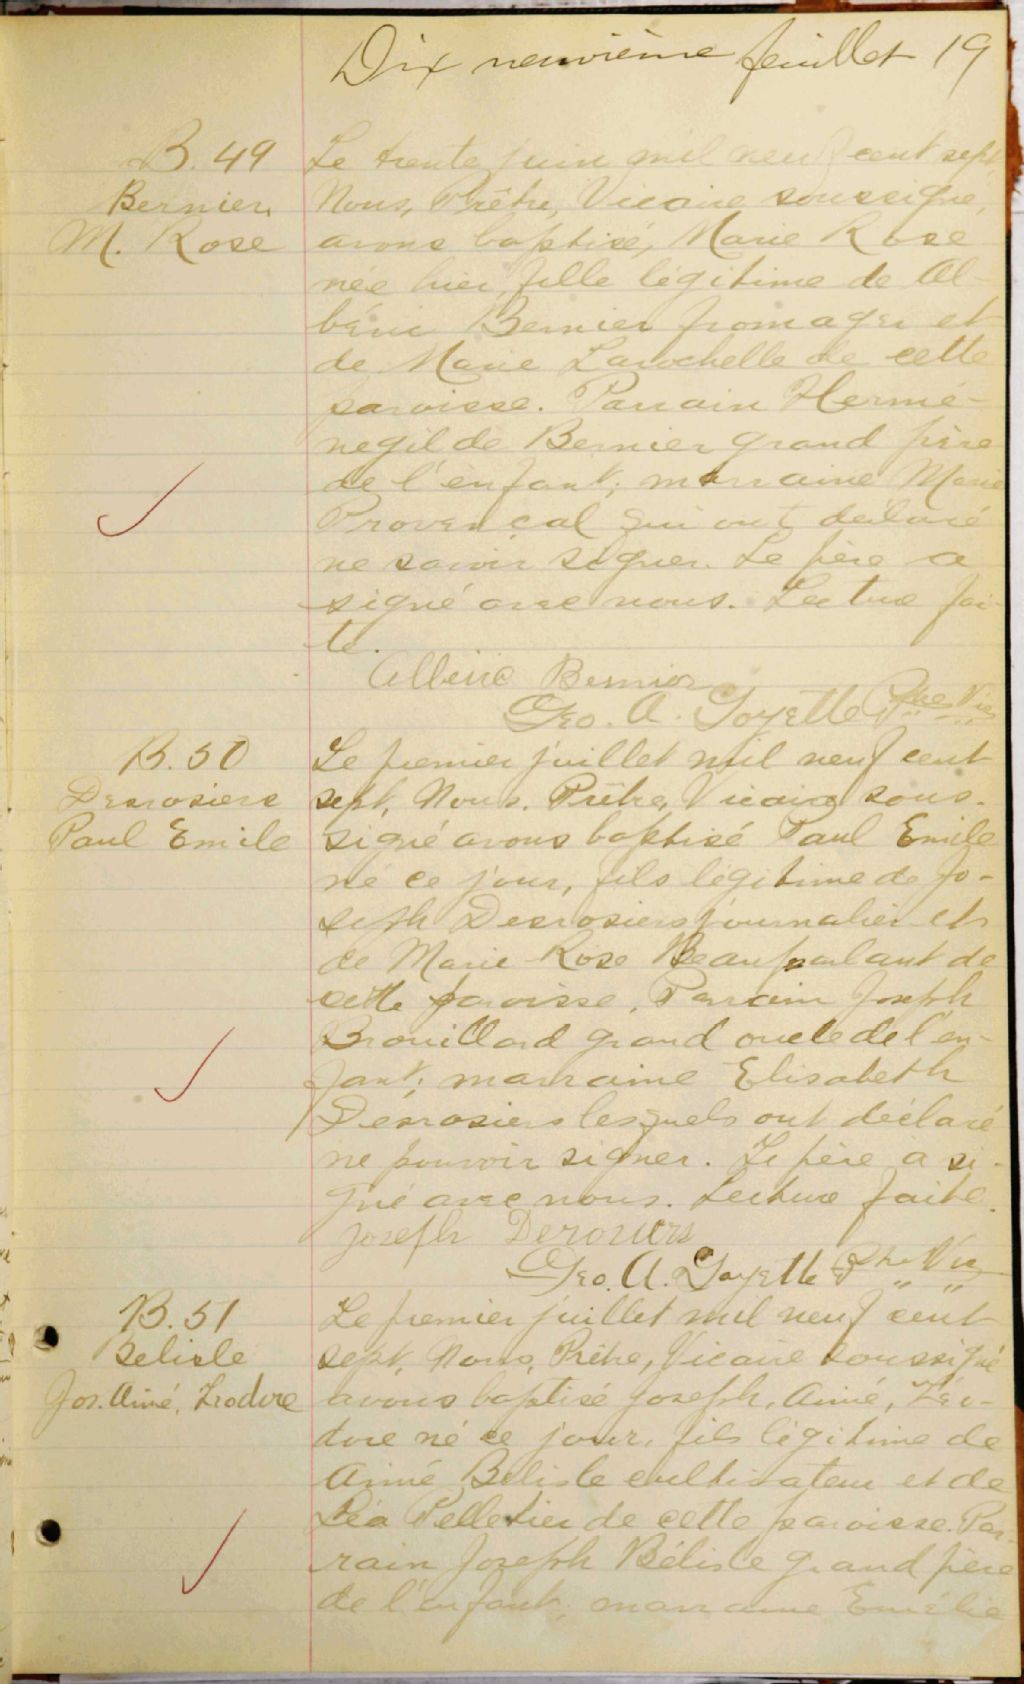 Dix neuvième feuillet 19
B. 49
Bernier
M. Rose
Le trente juin mil neuf cent sept
Nous, Prêtre, Vicaire soussigné,
avons baptisé, Marie Rose
née hier, fille légitime de Al-
béric Bernier fromager et
de Marie Larochelle de cette
paroisse. Parrain Hermé-
negilde Bernier grand père
de l'enfant; marraine Marie
Provençal qui ont déclaré
ne savoir signer. Le père a
signé avec nous. Lecture fai-
te.
Albéric Bernier
Geo. A. Goyette Ptre Vic
B. 50
Desrosiers
Paul Emile
Le premier juillet mil neuf cent
sept, Nous, Prêtre, Vicaire sous-
signé avons baptisé Paul Emile
né ce jour, fils légitime de Jo-
seph Desrosiers journalier et
de Marie-Rose Beauparlant de
cette paroisse, Parrain Joseph
Brouillard grand oncle de l'en-
fant; marraine Elisabeth
Désrosiers lesquels ont déclaré
ne pouvoir signer. Le père a si-
gné avec nous. Lecture faite.
Joseph
Geo. A. Goyette Ptre Vic
B. 51
Belisle
Jos. Aimé,
Le premier juillet mil neuf cent
sept, Nous, Prêtre, Vicaire soussigné
avons baptisé Joseph, Aimé, Léo-
dore né ce jour, fils légitime de
Aimé Belisle cultivateur et de
Léa Pelletier de cette paroisse. Par-
rain Joseph Bélisle grand père
de l'enfant, marraine Emélie